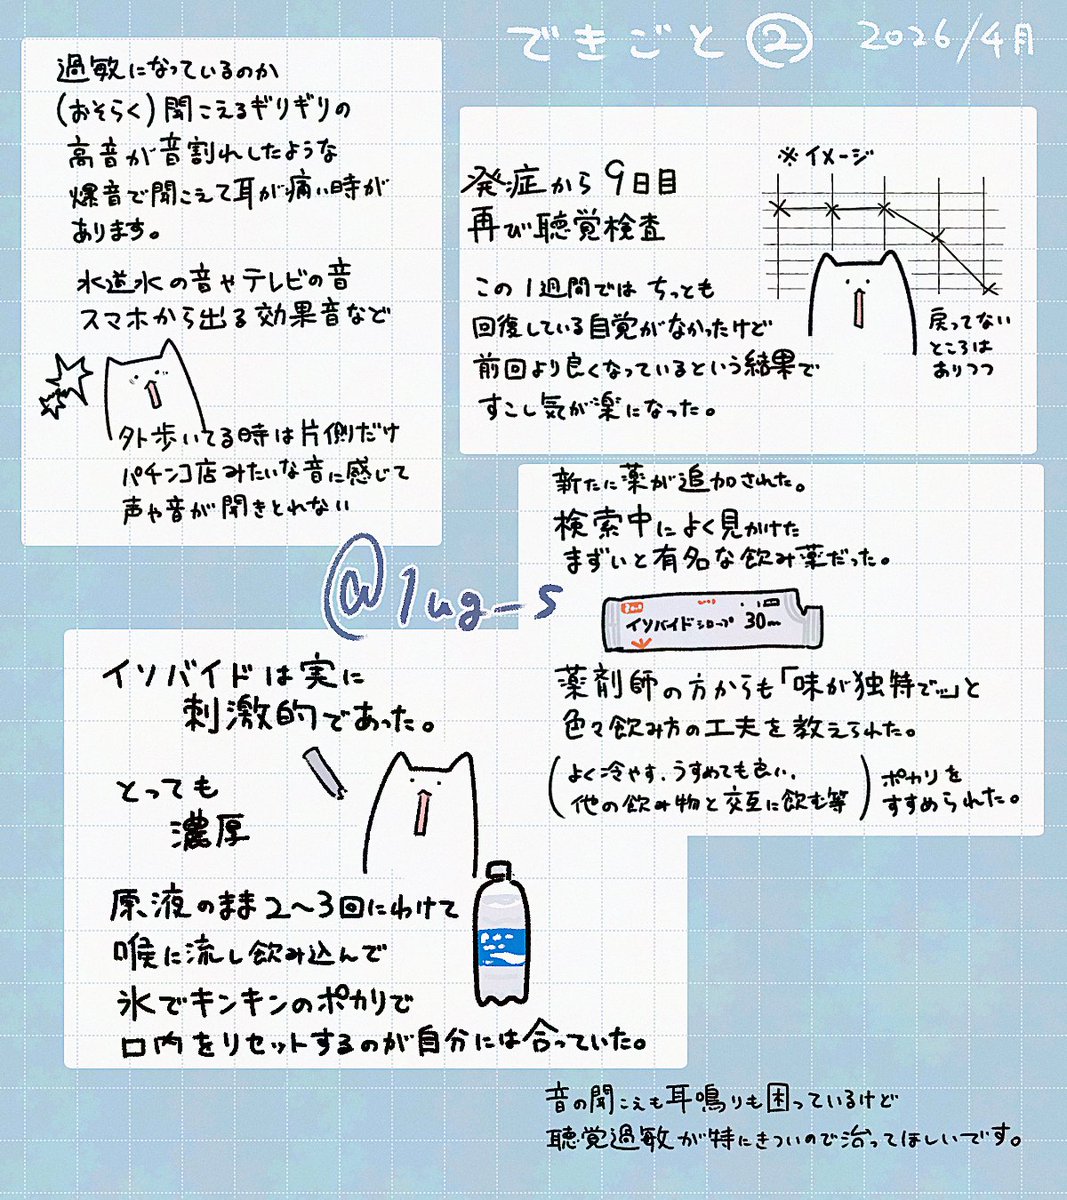 できごと ② 2026/4月
過敏になっているのか
(おそらく)聞こえるギリギリの
高音が音割れしたような
爆音で聞こえて耳が痛い時が
あります。
水道水の音やテレビの音
スマホから出る効果音など
外歩いてる時は片側だけ
パチンコ店みたいな音に感じて
声や音が聞きとれない
発症から9日目
再び聴覚検査
※イメージ
この1週間ではちっとも
回復している自覚がなかったけど
前回より良くなっているという結果で
すこし気が楽になった。
戻ってない
ところは
ありつつ
新たに薬が追加された。
検索中によく見かけた
まずいと有名な飲み薬だった。
イソバイドシロップ 30mL
薬剤師の方からも「味が独特で…」と
色々飲み方の工夫を教えられた。
(よく冷やす、うすめても良い、
他の飲み物と交互に飲む等)
ポカリを
すすめられた。
@1ug_s
イソバイドは実に
刺激的であった。
とっても
濃厚
原液のまま2〜3回にわけて
喉に流し飲み込んで
氷でキンキンのポカリで
口内をリセットするのが自分には合っていた。
音の聞こえも耳鳴りも困っているけど
聴覚過敏が特にきついので治ってほしいです。